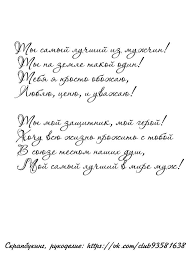 Ты самый лучший из мужчин!
Ты на земле такой один!
Тебя я просто обожаю,
Люблю, ценю, и уважаю!
Ты мой защитник, мой герой!
Хочу всю жизнь прожить с тобой
В союзе тесном наших душ,
Мой самый лучший в мире муж!
Скрапбукинг, рукоделие: https://ok.com/club93581638